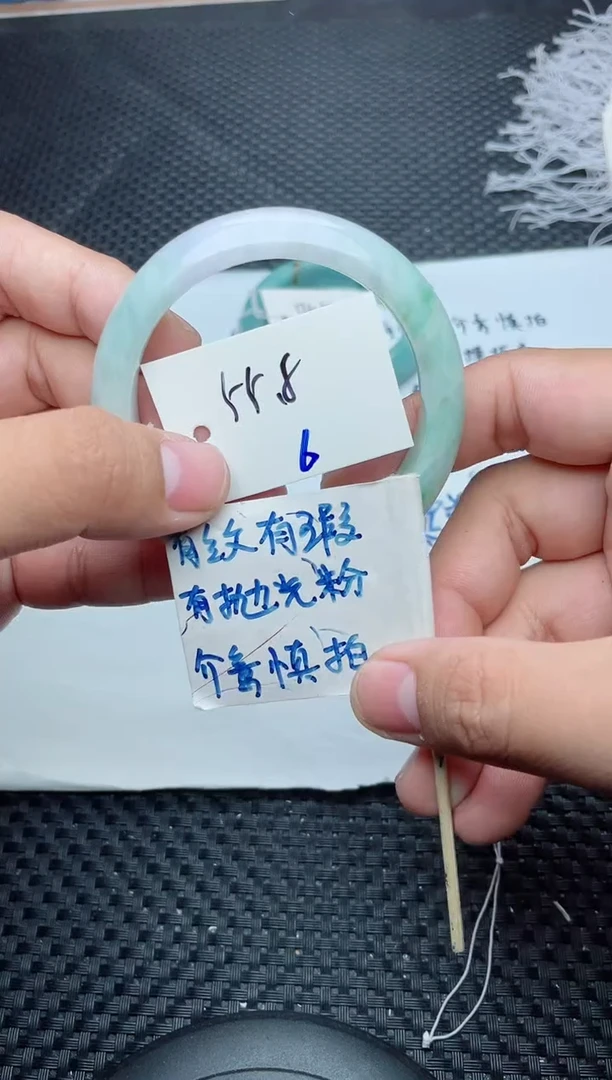 55.8
6
有纹有瑕
有抛光粉
介意慎拍
介意慎拍